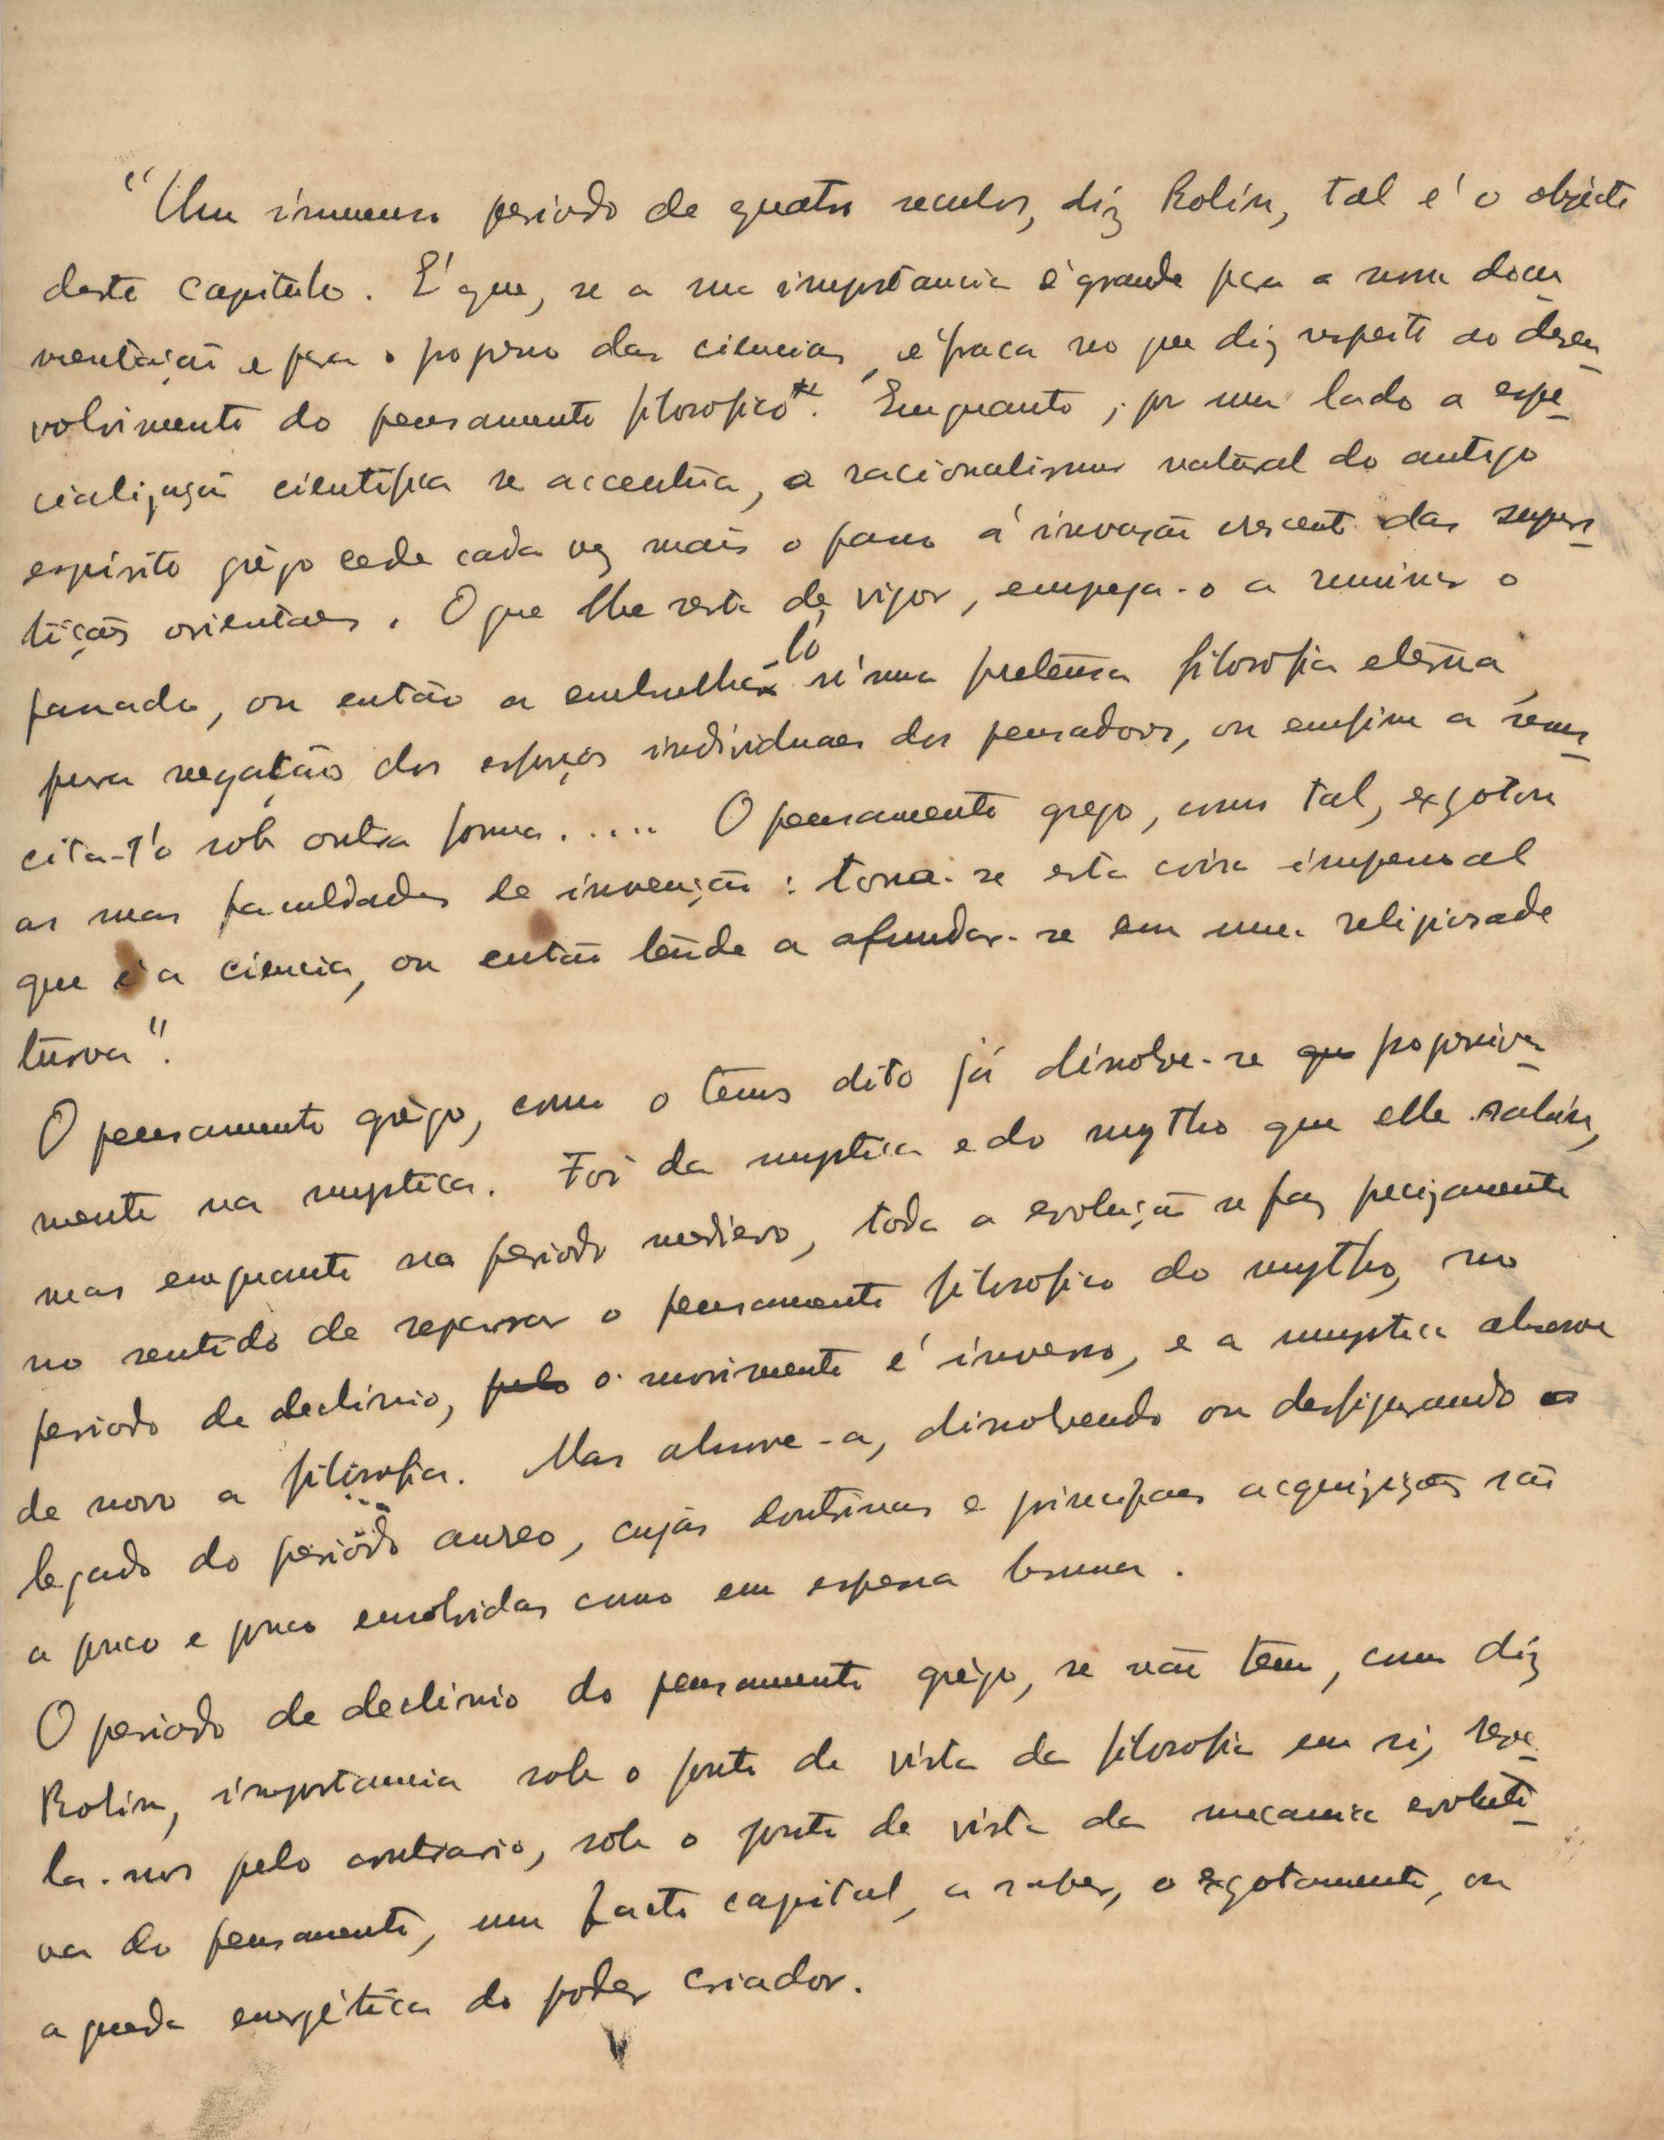 "Um immenso periodo de quatro seculos, diz Robin, tal é o objecto
deste capitulo. É que, se a sua importancia é grande para a nossa docu
mentação e para o progresso das ciencias, é fraca no que diz respeito ao desen
volvimento do pensamento filosofico*. Emquanto, por um lado a espe
cialização cientifica se accentúa, o racionalismo natural do antigo
espirito grêgo cede cada vez mais o passo á invasão crescente das supers
tições orientaes. O que lhe resta de vigor, emprega-o a ruminar o
passado, ou então a embrulha-lo n'uma pretensa filosofia eterna,
pura negação dos esforços individuaes dos pensadores, ou emfim a ressus
cita-l'o sob outra forma..... O pensamento grego, como tal, exgotou
as suas faculdades de invenção: torna-se esta coisa impessoal
que é a ciencia, ou então tende a afundar-se em uma religiosade
turva".
O pensamento grêgo, como o temos dito já dissolve-se que progressiva
mente na mystica. Foi da mystica e do mytho que elle sahiu,
mas emquanto no periodo medievo, toda a evolução se faz precizamente
no sentido de separar o pensamento filosofico do mytho, no
periodo de declinio, pelo o movimento é inverso, e a mystica absorve
de novo a filosofia. Mas absorve-a, dissolvendo ou desfigurando o
legado do periodo aureo, cujas doutrinas e principaes acquizições são
a pouco e pouco envolvidas como em espessa bruma.
O periodo de declinio do pensamento grêgo, se não tem, como diz
Robin, importancia sob o ponto de vista da filosofia em si, reve
la-nos pelo contrario, sob o ponto de vista da mecanica evoluti
va do pensamento, um facto capital, a saber, o exgotamento, ou
a queda energética do poder criador.